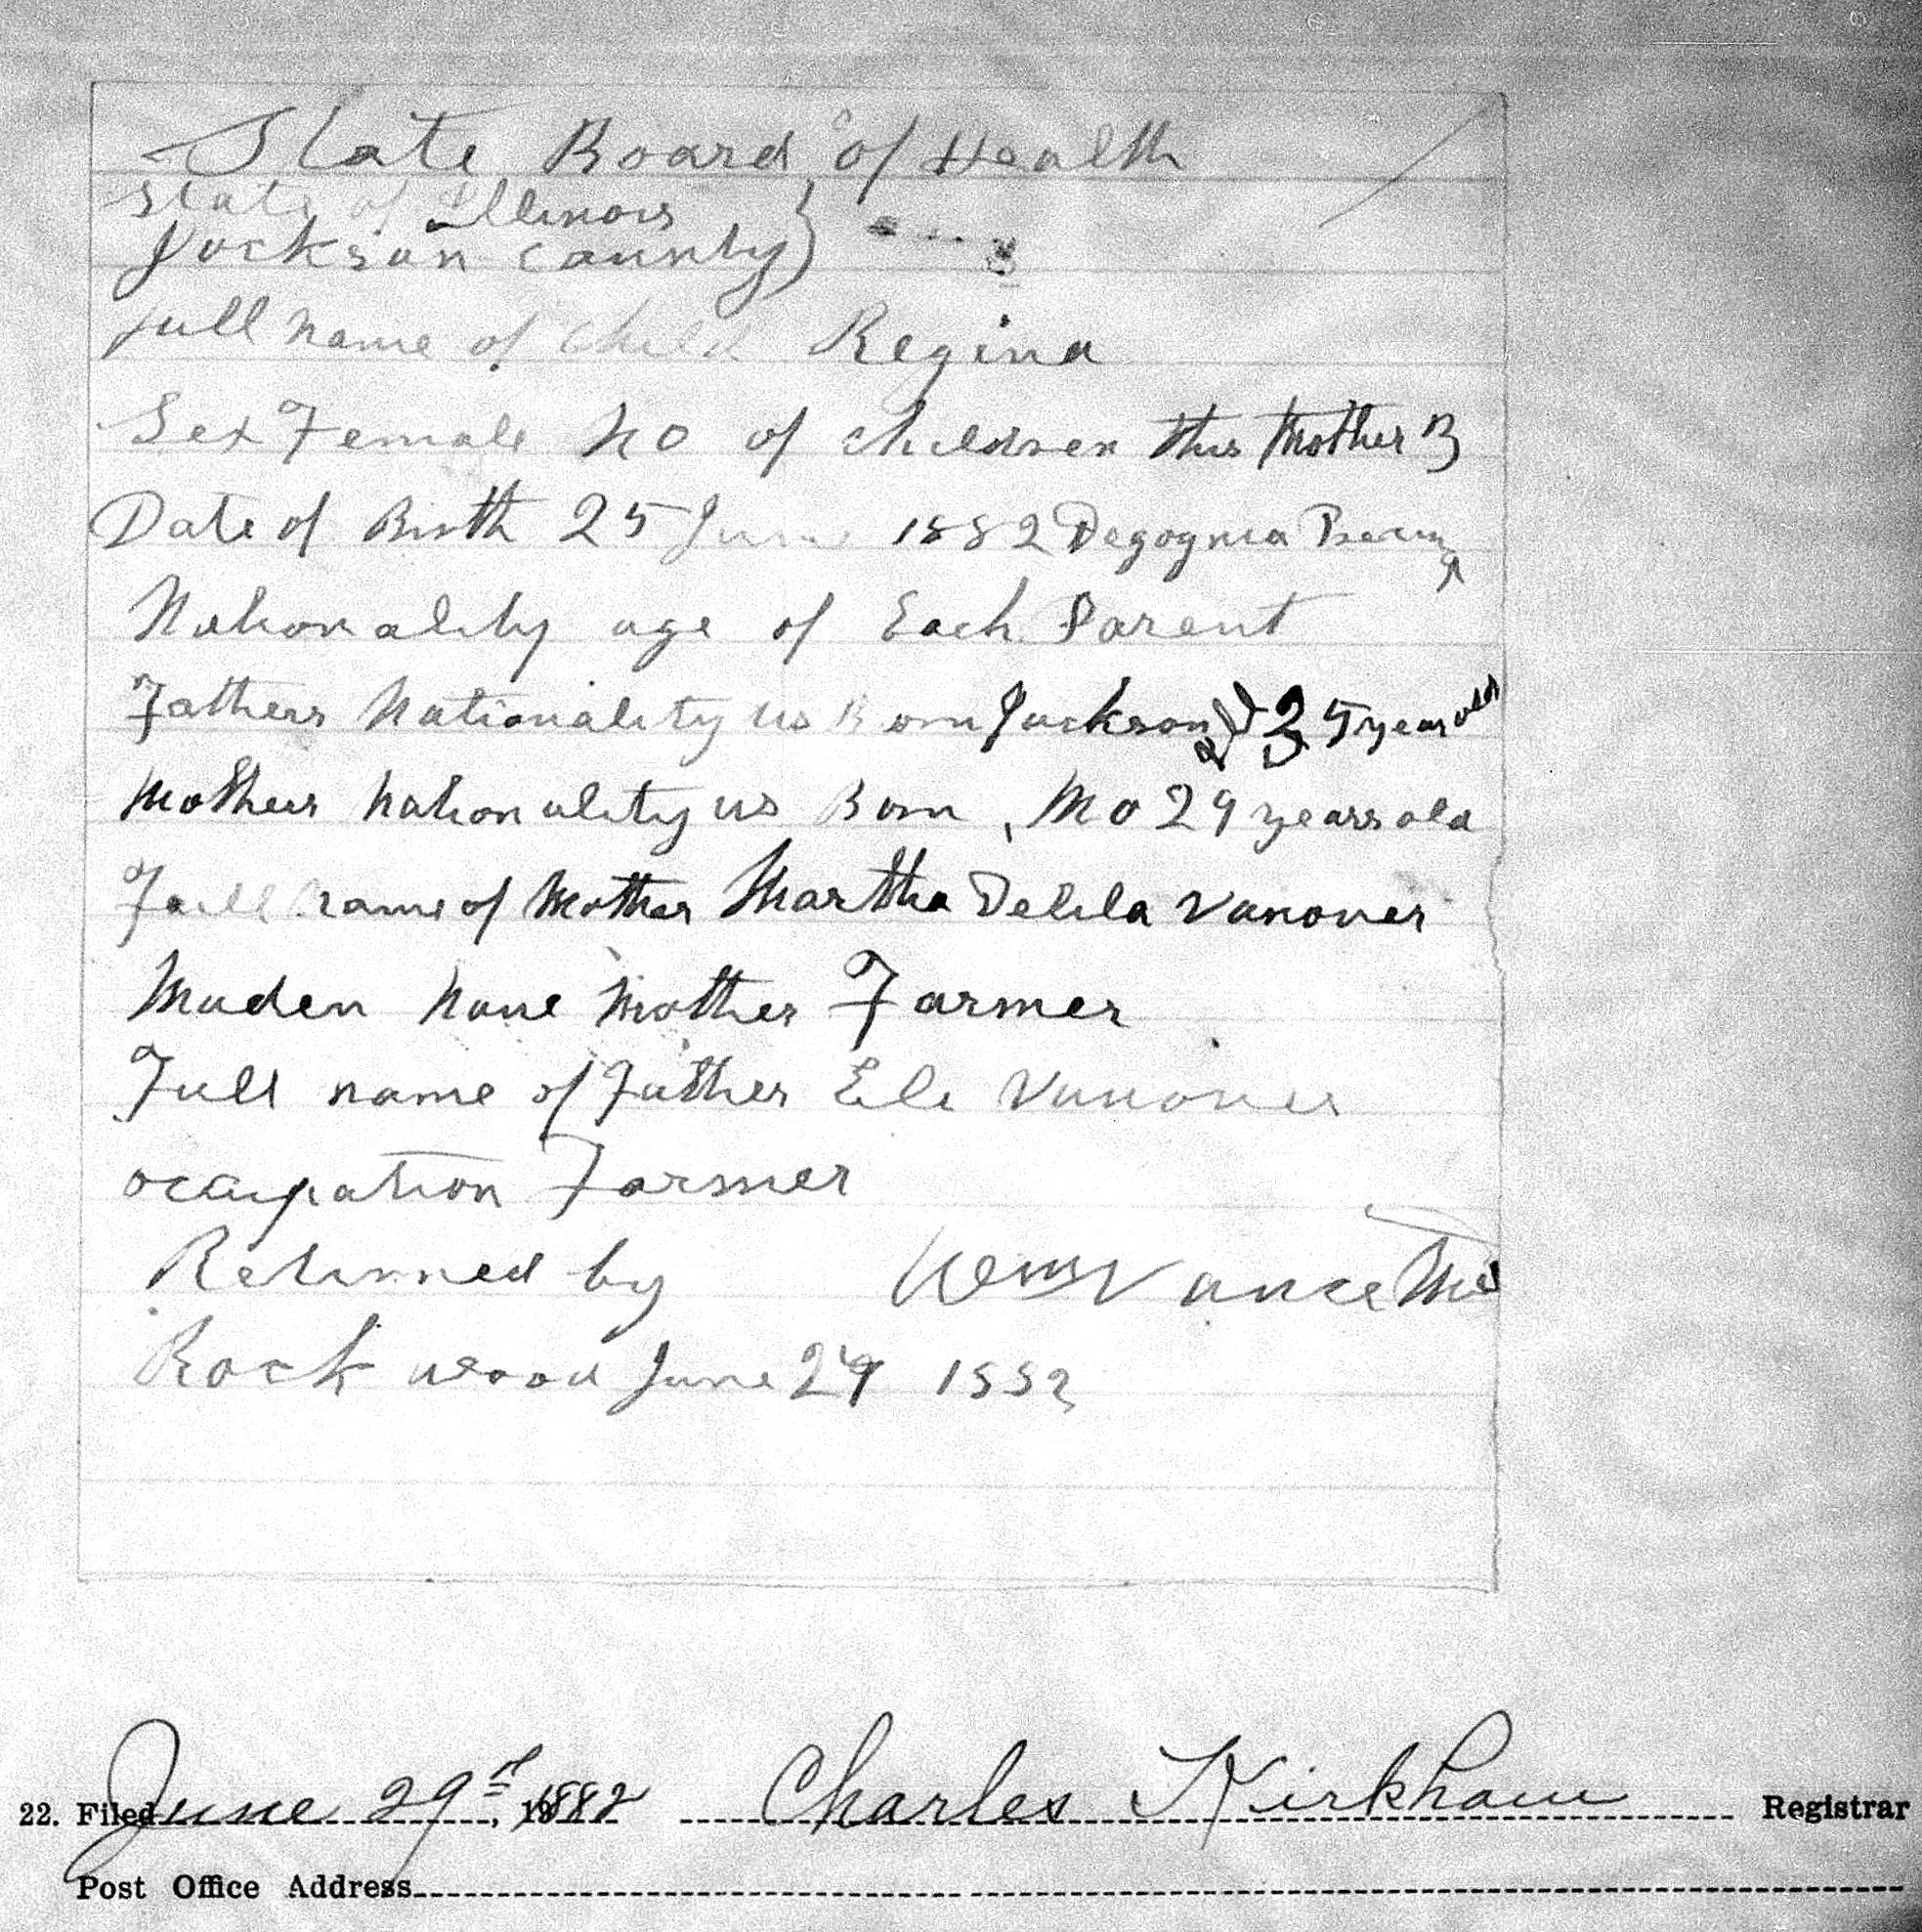 State Board of Health
State of Illinois
Jackson County }
full name of child Regina
Sex Female No of children this Mother 3
Date of Birth 25 June 1882 Degognia
Nationality age of Each Parent
Fathers Nationality us Born Jackson 35 years old
Mothers Nationality us Born Mo 29 years old
Full name of Mother Martha Delila Vanover
Maden Name Mother Farmer
Full name of Father Eli Vanover
occupation Farmer
Returned by Wm Vance Md
Rock wood June 29 1882
22. Filed June 29th, 1882 Charles Kirkham Registrar
Post Office Address